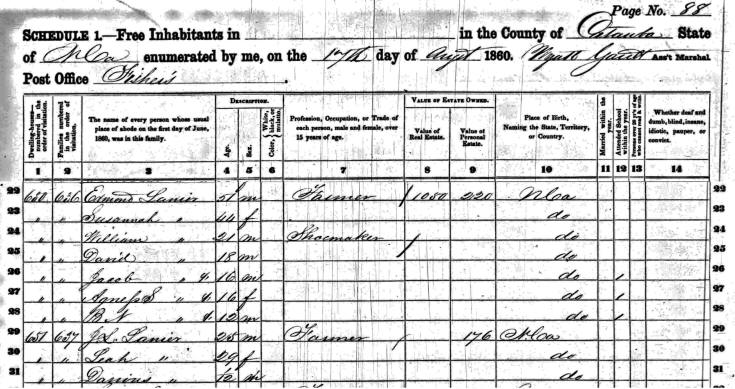 Page No. 88
SCHEDULE 1.—Free Inhabitants in in the County of Catawba State
of N Ca enumerated by me, on the 17th day of Augt 1860. Wyatt Ass't Marshal
Post Office Fisher's
DESCRIPTION. VALUE OF ESTATE OWNED.
Dwelling-houses—numbered in the order of visitation. Families numbered in the order of visitation. The name of every person whose usual place of abode on the first day of June, 1860, was in this family. Age. Sex. Color, White, black, or mulatto. Profession, Occupation, or Trade of each person, male and female, over 15 years of age. Value of Real Estate. Value of Personal Estate. Place of Birth, Naming the State, Territory, or Country. Married within the year. Attended School within the year. Persons over 20 y'rs of age who cannot read & write. Whether deaf and dumb, blind, insane, idiotic, pauper, or convict.
1 2 3 4 5 6 7 8 9 10 11 12 13 14
22 650 656 Edmond Lanier 51 m Farmer 1050 220 N Ca 22
23 " " Susannah " 44 f do 23
24 " " William " 21 m Shoemaker do 24
25 " " David " 18 m do 25
26 " " Jacob " 4 16 m do 1 26
27 " " Agness S " 4 16 f do 1 27
28 " " B. N " 4 12 m do 1 28
29 651 657 J. L. Lanier 25 m Farmer 176 N Ca 29
30 " " Leah " 29 f do 30
31 " " " m do 31